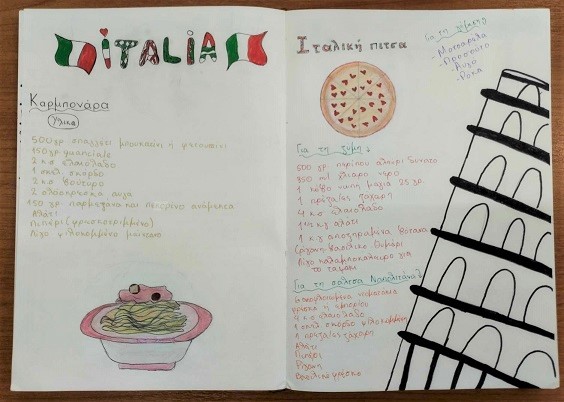 iTALiA
Καρμπονάρα
Υλικά
500 γρ. σπαγγέτι μπουκατίνι ή φετουτσίνι
150 γρ. guanciale
2 κ.σ ελαιόλαδο
1 σκελ. σκόρδο
2 κ.σ βούτυρο
2 ολόκληρα αυγά
150 γρ παρμεζάνα και πεκορίνο ανάμεικτα
Αλάτι
Πιπέρι (φρεσκοκομμένο)
Λίγο ψιλοκομμένο μαϊντανό
Ιταλική πιτσα
Για τη γέμιση
-Μοτσαρέλα
-Προσούτο
-Αυγό
-Ρόκα
Για τη ζύμη:
500 γρ περίπου αλεύρι δυνατό
350 ml χλιαρό νερό
1 κύβο νωπή μαγιά 25 γρ.
1 πρέζα/ες ζάχαρη
4 κ.σ ελαιόλαδο
1½ κ.γ αλάτι
1 κ.γ αποξηραμένα βότανα
(ρίγανη-βασιλικό-θυμάρι
Λίγο καλαμποκάλευρο για
το ταψάκι
Για τη σάλτσα Ναπολιτάνα:
φρέσκια ή εμπορίου
4 κ.σ ελαιόλαδο
1 σκελ. σκόρδο ψιλοκομμένη
1 πρέζα/ες ζάχαρη
Αλάτι
Πιπέρι
Ρίγανη
Βασιλικό φρέσκο